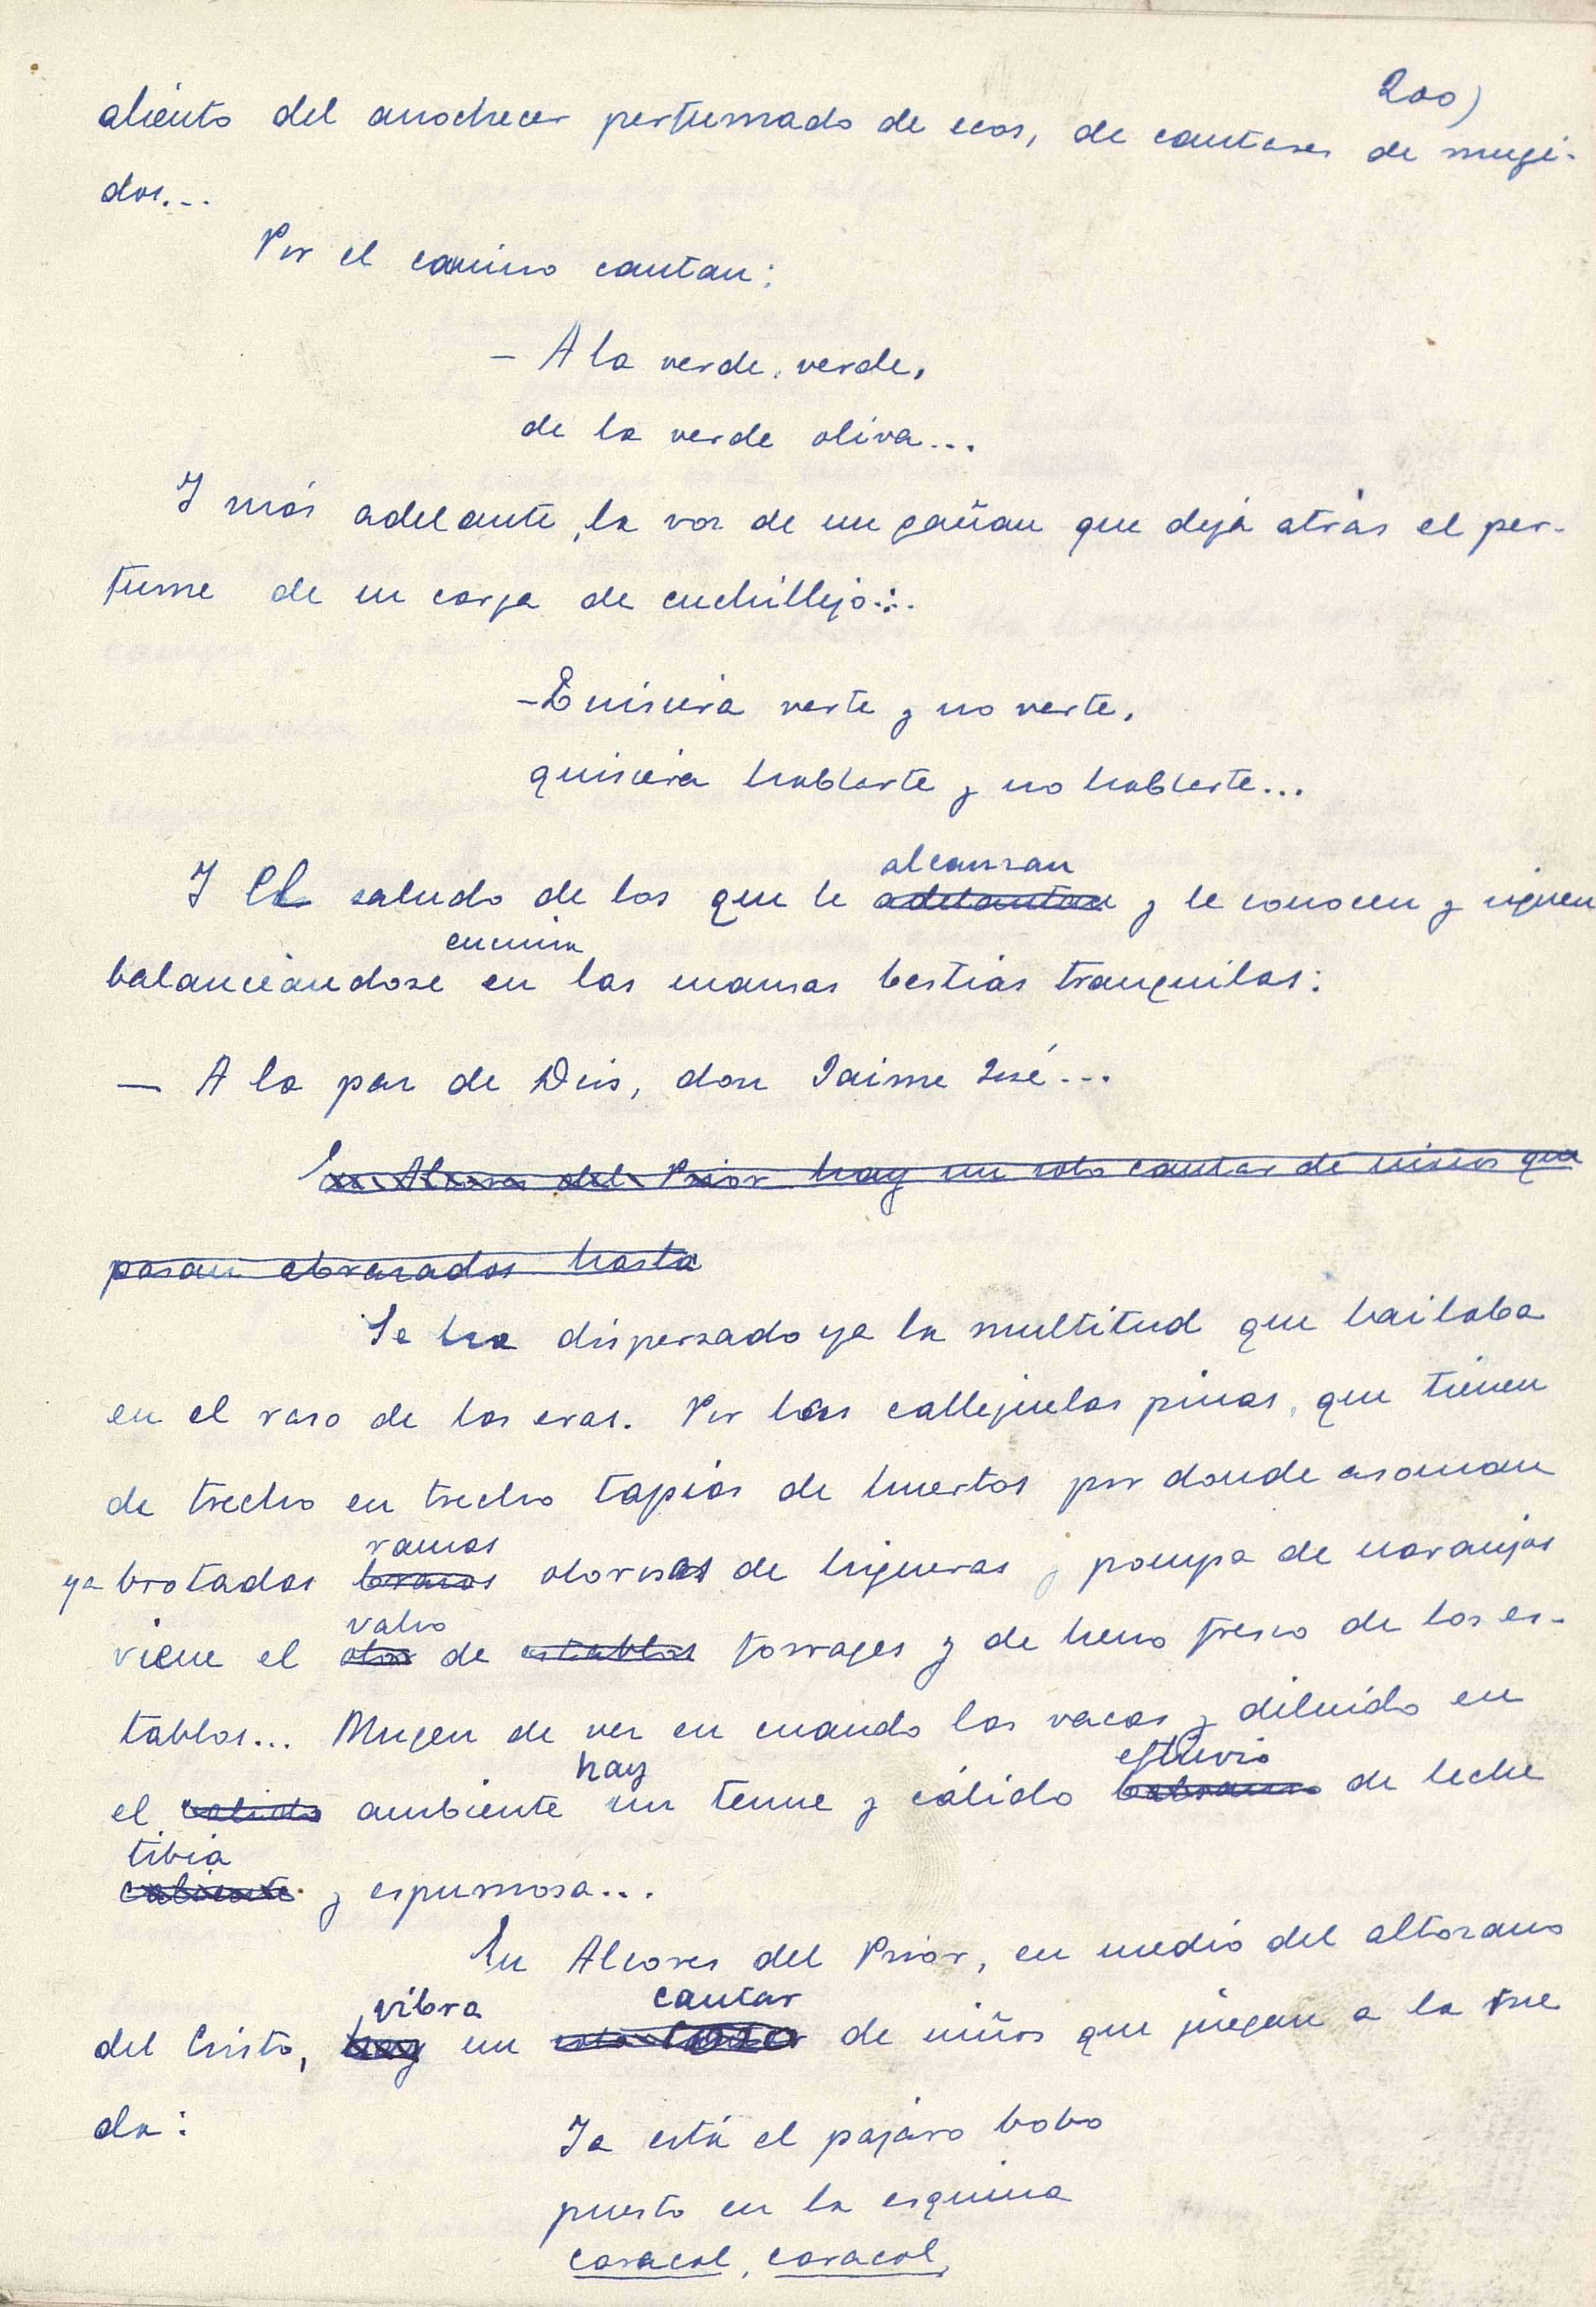 200)
aliento del anochecer perfumado de ecos, de cantares de mugi-
dos...
Por el camino cantan:
- A la verde, verde,
de la verde oliva...
Y más adelante, la voz de un gañán que deja atrás el per-
fume de su carga de cuchillejo...
- Quisiera verte y no verte,
quisiera hablarte y no hablarte...
alcanzan
Y el saludo de los que le adelantan y le conocen y siguen
encima
balanceándose en las mansas bestias tranquilas:
- A la paz de Dios, don Jaime José...
En Alcores del Prior hay un solo cantar de niños que
pasan abrazados hasta
Se ha dispersado ya la multitud que bailaba
en el raso de las eras. Por las callejuelas pinas, que tienen
de trecho en trecho tapias de huertos por donde asoman
ramas
ya brotadas brazos olorosas de higueras y pompa de naranjos
vaho
viene el olor de establos forrajes y de heno fresco de los es-
tablos... Mugen de vez en cuando las vacas y diluido en
hay efluvio
el cálido ambiente un tenue y cálido de leche
tibia
caliente y espumosa...
En Alcores del Prior, en medio del altozano
vibra cantar
del Cristo, hay un de niños que juegan a la rue
da:
Ya está el pájaro bobo
puesto en la esquina
caracol, caracol,